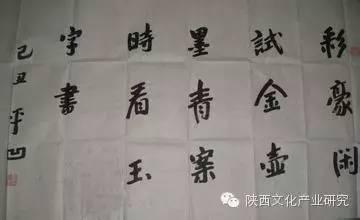 彩豪閑
試金壺
墨青案
時看玉
字書
己丑平凹
陕西文化产业研究